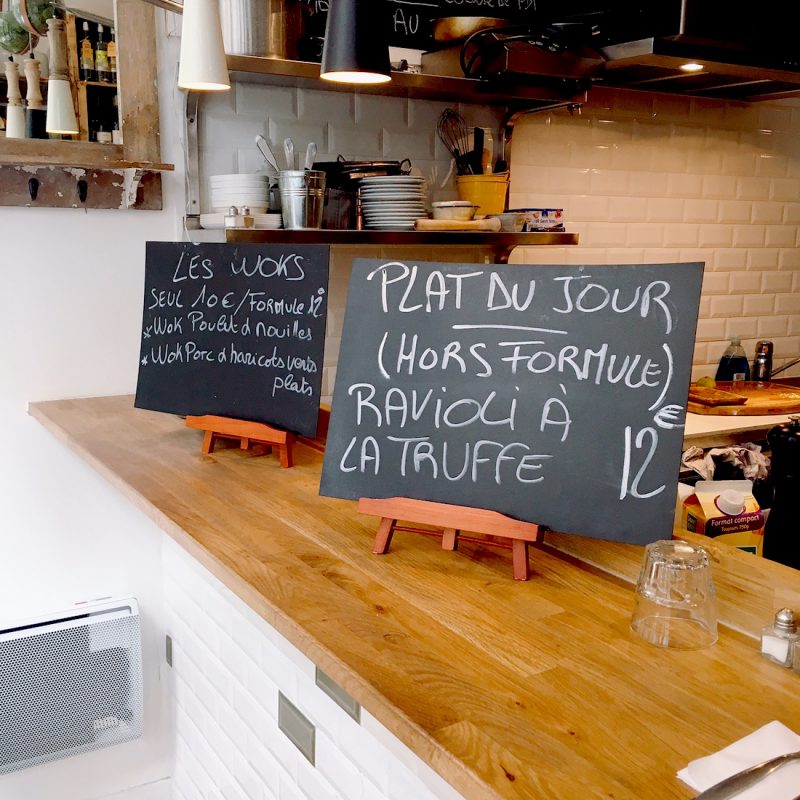 AU
LES WOKS
SEUL 10€/FORMULE 12
* WOK Poulet & nouilles
* WOK Porc & haricots verts
plats
PLAT DU JOUR
(HORS FORMULE)
RAVIOLI À
LA TRUFFE 12€
Format compact